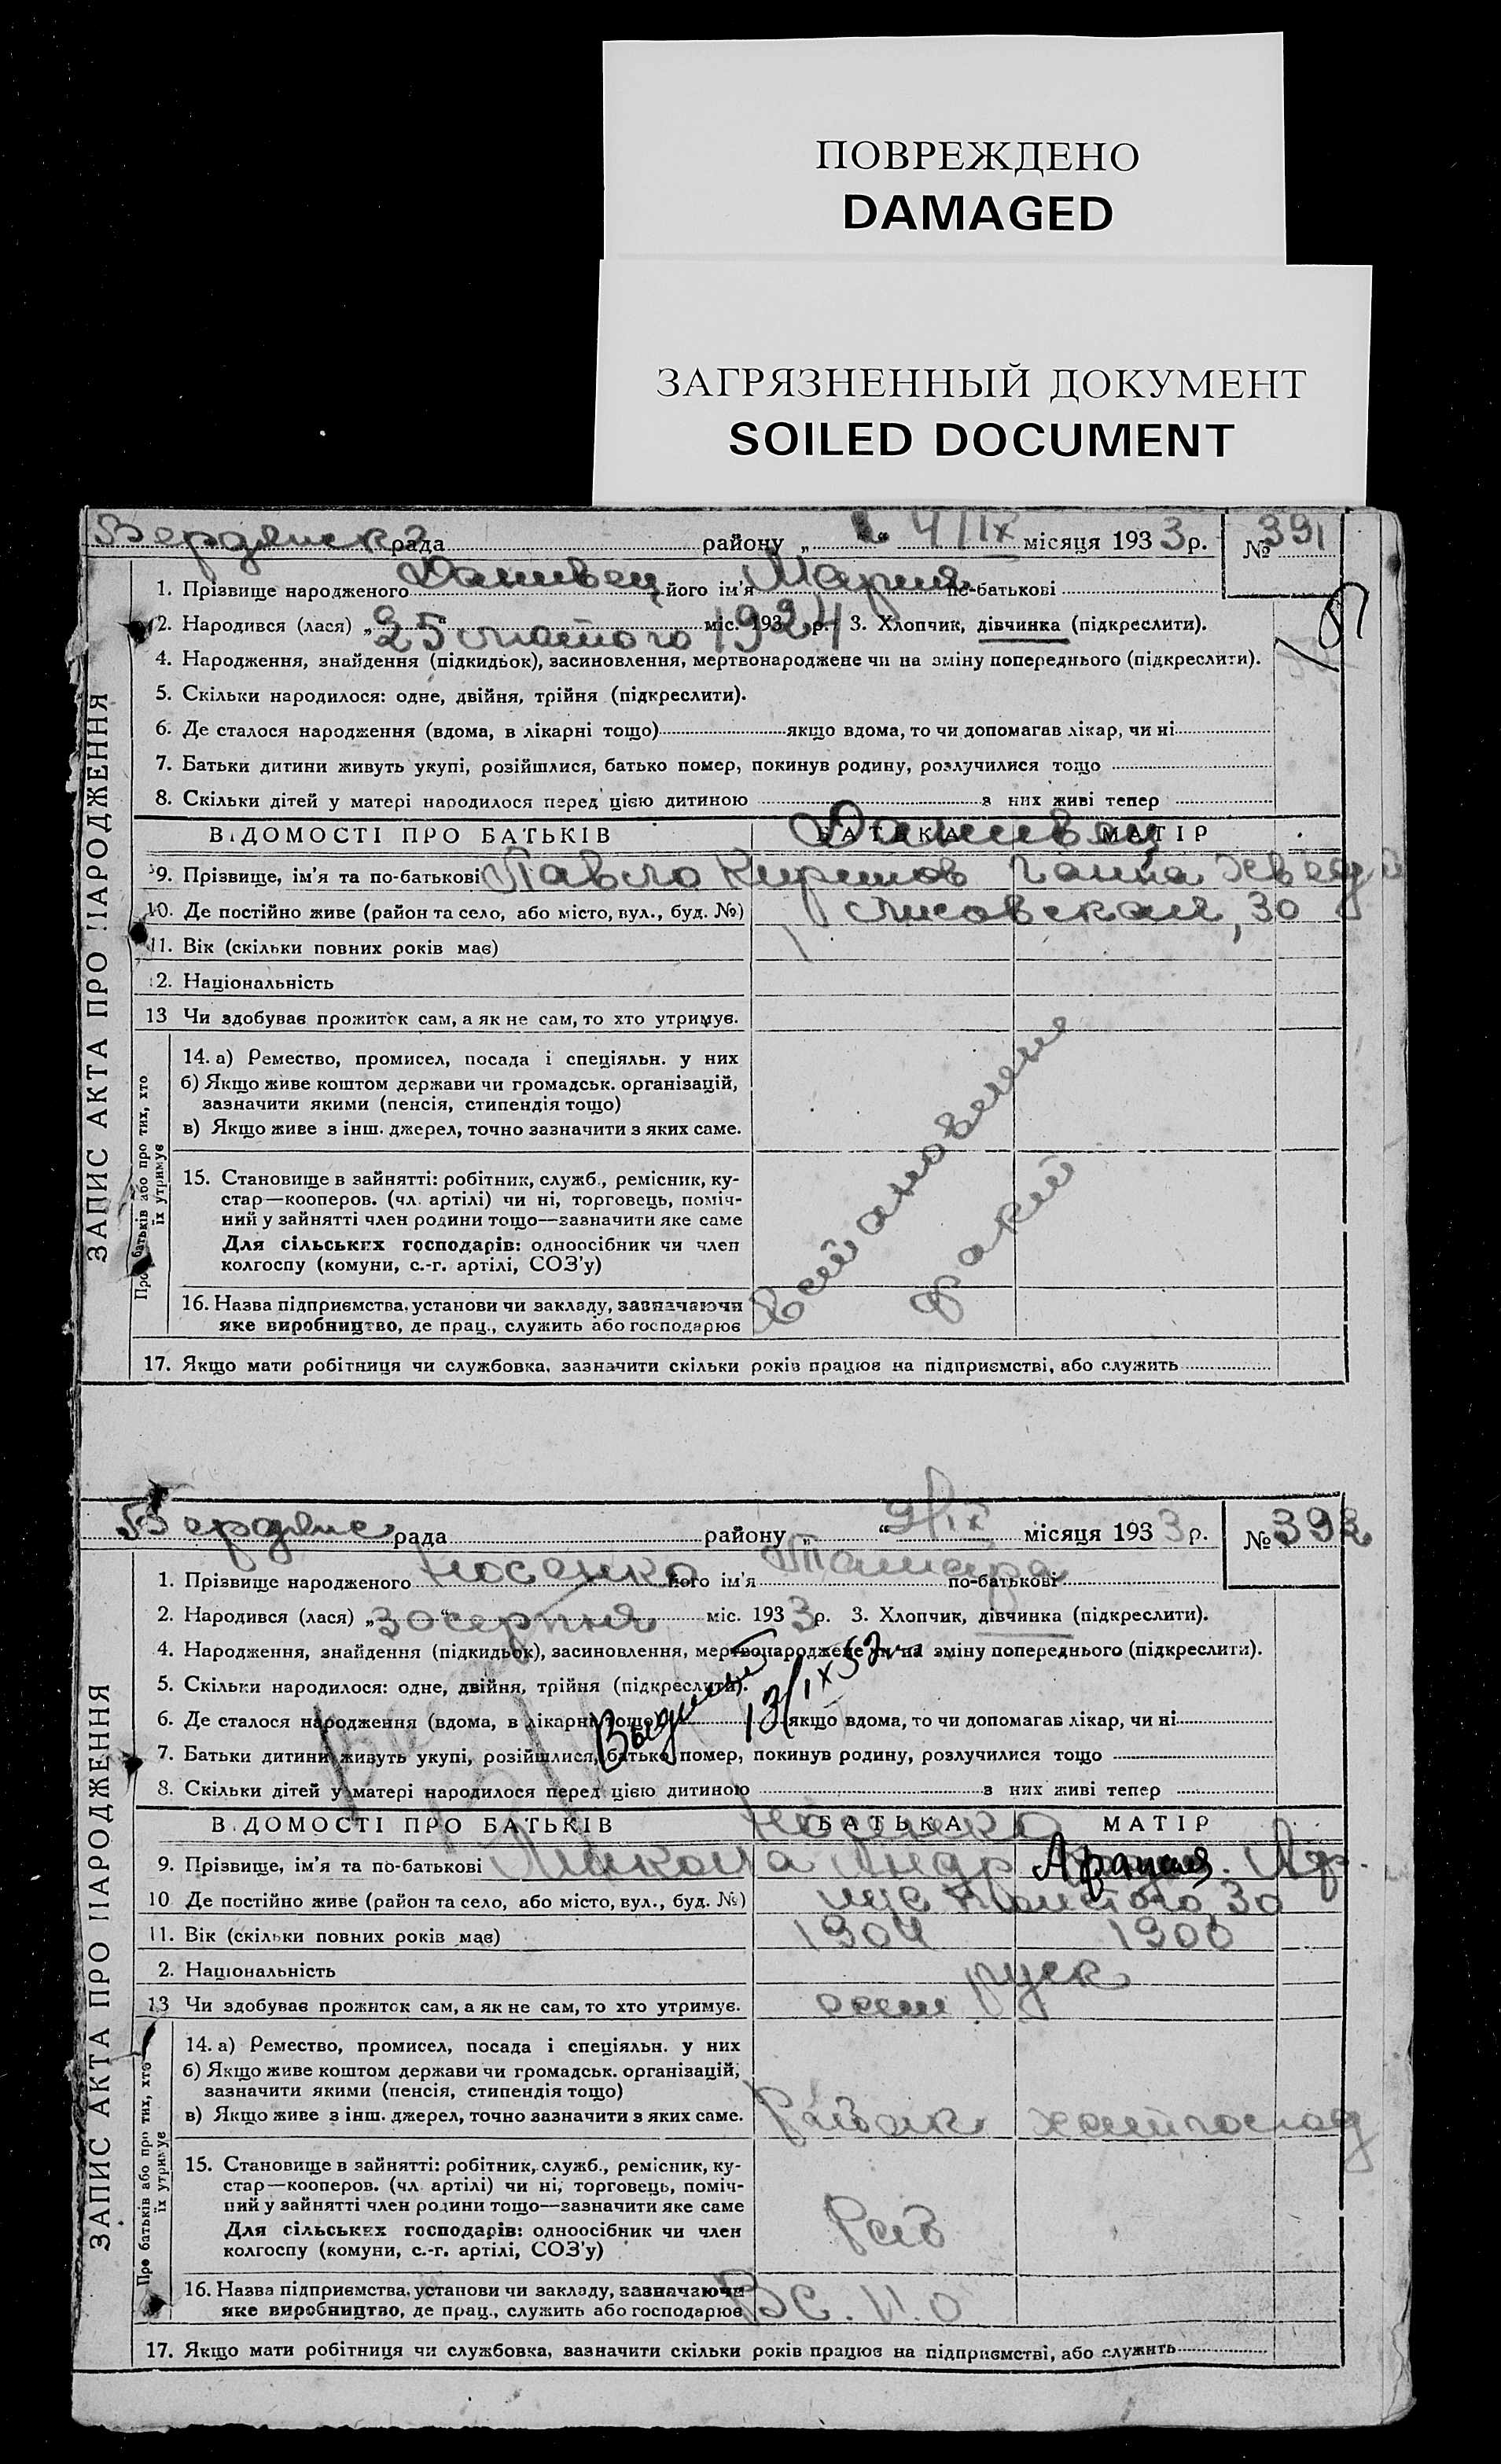 ПОВРЕЖДЕНО
DAMAGED
ЗАГРЯЗНЕННЫЙ ДОКУМЕНТ
SOILED DOCUMENT
Бердянска рада района „ “ 4/IX місяця 1933 р. № 391
1. Прізвище народженого його ім'я Мария по-батькові
2. Народився (лася) „25“ лютого міс. 1924 р. 3. Хлопчик, дівчинка (підкреслити).
4. Народження, знайдення (підкидьок), засиновлення, мертвонароджене чи на зміну попереднього (підкреслити).
5. Скільки народилося: одне, двійня, трійня (підкреслити).
6. Де сталося народження (вдома, в лікарні тощо) якщо вдома, то чи допомагав лікар, чи ні
7. Батьки дитини живуть укупі, розійшлися, батько помер, покинув родину, розлучилися тощо
8. Скільки дітей у матері народилося перед цією дитиною з них живі тепер
ВІДОМОСТІ ПРО БАТЬКІВ БАТЬКА МАТІР
9. Прізвище, ім'я та по-батькові Павло Ганна
10. Де постійно живе (район та село, або місто, вул., буд. №) 30
11. Вік (скільки повних років має)
12. Національність
13 Чи здобуває прожиток сам, а як не сам, то хто утримує.
14. а) Ремество, промисел, посада і спеціяльн. у них
б) Якщо живе коштом держави чи громадськ. організацій,
зазначити якими (пенсія, стипендія тощо)
в) Якщо живе з інш. джерел, точно зазначити з яких саме.
15. Становище в зайнятті: робітник, служб., ремісник, ку-
стар—кооперов. (чл. артілі) чи ні, торговець, поміч-
ний у зайнятті член родини тощо—зазначити яке саме
Для сільських господарів: одноосібник чи член
колгоспу (комуни, с.-г. артілі, СОЗ'у)
16. Назва підприємства, установи чи закладу, зазначаючи
яке виробництво, де прац., служить або господарює
17. Якщо мати робітниця чи службовка, зазначити скільки років працює на підприємстві, або служить
ЗАПИС АКТА ПРО НАРОДЖЕННЯ
Про батьків або про тих, хто
їх утримує
Бердянс рада району „ “ 9/IX місяця 1933 р. № 392
1. Прізвище народженого Носенко його ім'я Тамара по-батькові
2. Народився (лася) „30“ серпня міс. 1933 р. 3. Хлопчик, дівчинка (підкреслити).
4. Народження, знайдення (підкидьок), засиновлення, мертвонароджене чи на зміну попереднього (підкреслити).
5. Скільки народилося: одне, двійня, трійня (підкреслити).
6. Де сталося народження (вдома, в лікарні тощо) якщо вдома, то чи допомагав лікар, чи ні
7. Батьки дитини живуть укупі, розійшлися, батько помер, покинув родину, розлучилися тощо
8. Скільки дітей у матері народилося перед цією дитиною з них живі тепер
ВІДОМОСТІ ПРО БАТЬКІВ БАТЬКА МАТІР
Носенко
9. Прізвище, ім'я та по-батькові Микола Андр
10 Де постійно живе (район та село, або місто, вул., буд. №) 30
11. Вік (скільки повних років має) 1904 1900
2. Національність руск
13 Чи здобуває прожиток сам, а як не сам, то хто утримує. сам
14. а) Ремество, промисел, посада і спеціяльн. у них
б) Якщо живе коштом держави чи громадськ. організацій,
зазначити якими (пенсія, стипендія тощо)
в) Якщо живе з інш. джерел, точно зазначити з яких саме.
15. Становище в зайнятті: робітник, служб., ремісник, ку-
стар—кооперов. (чл. артілі) чи ні, торговець, поміч-
ний у зайнятті член родини тощо—зазначити яке саме
Для сільських господарів: одноосібник чи член
колгоспу (комуни, с.-г. артілі, СОЗ'у)
16. Назва підприємства, установи чи закладу, зазначаючи
яке виробництво, де прац., служить або господарює
17. Якщо мати робітниця чи службовка, зазначити скільки років працює на підприємстві, або служить
ЗАПИС АКТА ПРО НАРОДЖЕННЯ
Про батьків або про тих, хто
їх утримує